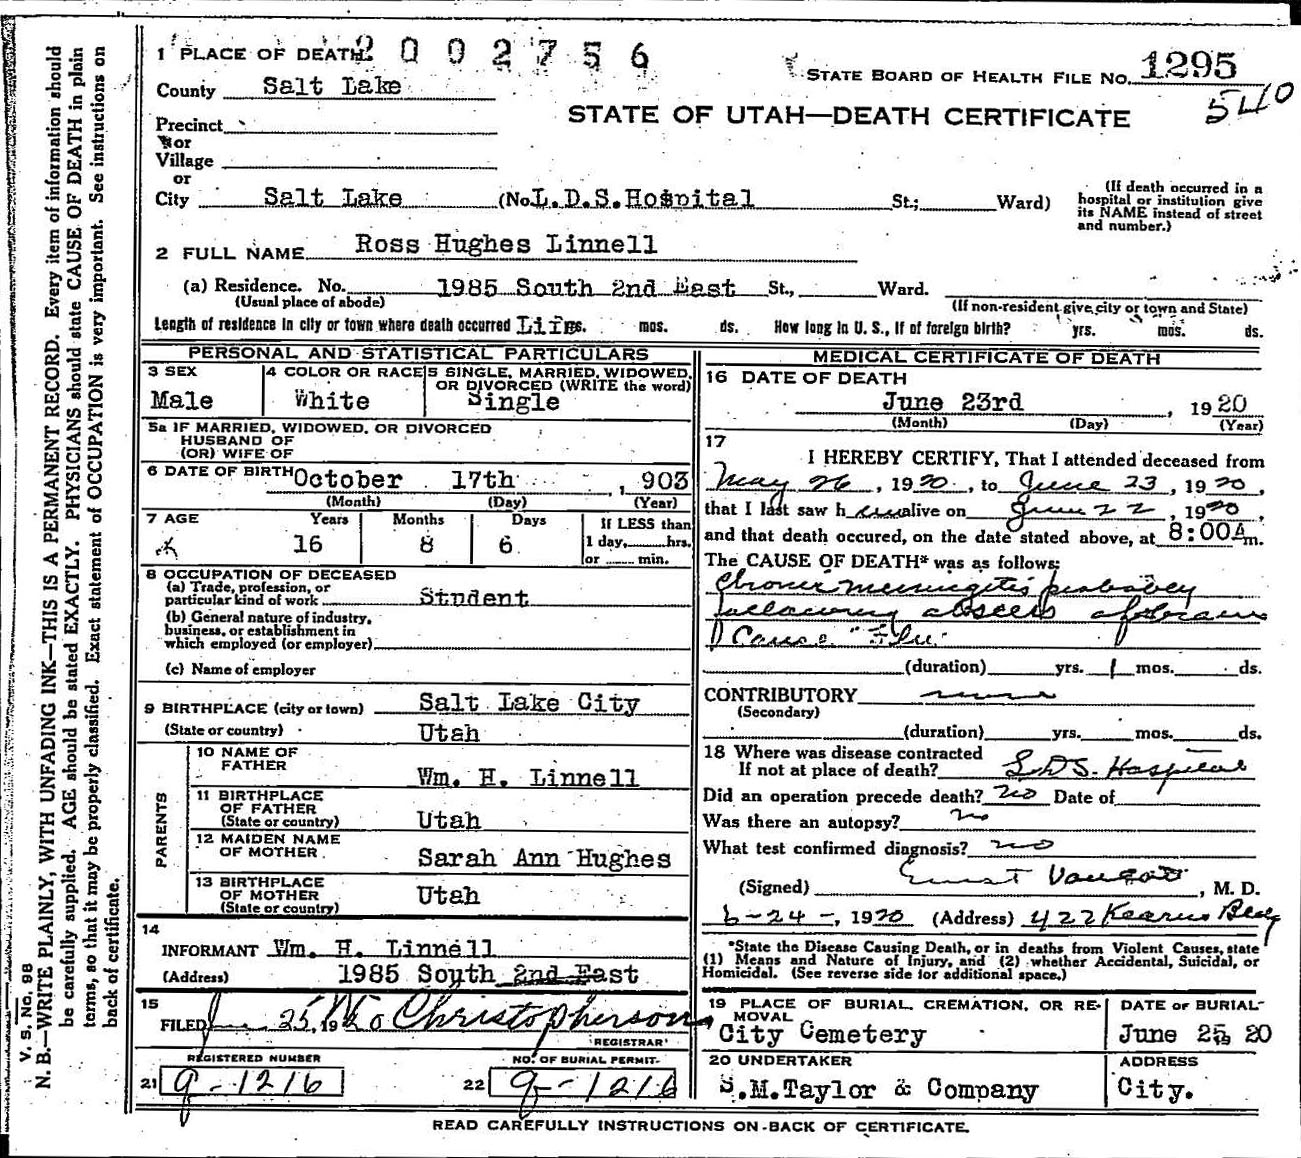 1 PLACE OF DEATH 2002756
STATE BOARD OF HEALTH FILE NO. 1295
County Salt Lake
540
STATE OF UTAH—DEATH CERTIFICATE
Precinct
or
Village
or
City Salt Lake (No. L.D.S. Hospital St.; Ward)
(If death occurred in a
hospital or institution give
its NAME instead of street
and number.)
2 FULL NAME Ross Hughes Linnell
(a) Residence. No. 1985 South 2nd East St., Ward.
(Usual place of abode) (If non-resident give city or town and State)
Length of residence in city or town where death occurred Life mos. ds. How long in U. S., if of foreign birth? yrs. mos. ds.
PERSONAL AND STATISTICAL PARTICULARS
3 SEX 4 COLOR OR RACE 5 SINGLE, MARRIED, WIDOWED,
OR DIVORCED (WRITE the word)
Male White Single
5a IF MARRIED, WIDOWED, OR DIVORCED
HUSBAND OF
(OR) WIFE OF
6 DATE OF BIRTH October 17th , 903
(Month) (Day) (Year)
7 AGE Years Months Days If LESS than
1 day, hrs.
16 8 6
or min.
8 OCCUPATION OF DECEASED
(a) Trade, profession, or
particular kind of work Student
(b) General nature of industry,
business, or establishment in
which employed (or employer)
(c) Name of employer
9 BIRTHPLACE (city or town) Salt Lake City
(State or country) Utah
PARENTS
10 NAME OF
FATHER Wm. H. Linnell
11 BIRTHPLACE
OF FATHER
(State or country) Utah
12 MAIDEN NAME
OF MOTHER Sarah Ann Hughes
13 BIRTHPLACE
OF MOTHER
(State or country) Utah
14
INFORMANT Wm. H. Linnell
(Address) 1985 South 2nd East
15
FILED 25, 1920 Christopherson
REGISTRAR
REGISTERED NUMBER NO. OF BURIAL PERMIT
21 9-1216 22 9-1216
MEDICAL CERTIFICATE OF DEATH
16 DATE OF DEATH
June 23rd , 1920
(Month) (Day) (Year)
17
I HEREBY CERTIFY, That I attended deceased from
May 26, 1920, to June 23, 1920,
that I last saw him alive on June 22, 1920,
and that death occured, on the date stated above, at 8:00A m.
The CAUSE OF DEATH* was as follows:
Chronic meningitis probabley
following abscess of brain
Cause "Flu"
(duration) yrs. 1 mos. ds.
CONTRIBUTORY none
(Secondary)
(duration) yrs. mos. ds.
18 Where was disease contracted
If not at place of death? LDS. Hospital
Did an operation precede death? no Date of
Was there an autopsy? no
What test confirmed diagnosis? no
(Signed) Ernest Van Cott, M. D.
6-24-, 1920 (Address) 422 Kearns Bldg
*State the Disease Causing Death, or in deaths from Violent Causes, state
(1) Means and Nature of Injury, and (2) whether Accidental, Suicidal, or
Homicidal. (See reverse side for additional space.)
19 PLACE OF BURIAL, CREMATION, OR RE-
MOVAL
City Cemetery
DATE OF BURIAL
June 25 20
20 UNDERTAKER
S.M.Taylor & Company
ADDRESS
City.
READ CAREFULLY INSTRUCTIONS ON BACK OF CERTIFICATE.
V. S. No. 98
N. B.—WRITE PLAINLY, WITH UNFADING INK—THIS IS A PERMANENT RECORD. Every item of information should
be carefully supplied. AGE should be stated EXACTLY. PHYSICIANS should state CAUSE OF DEATH in plain
terms, so that it may be properly classified. Exact statement of OCCUPATION is very important. See instructions on
back of certificate.